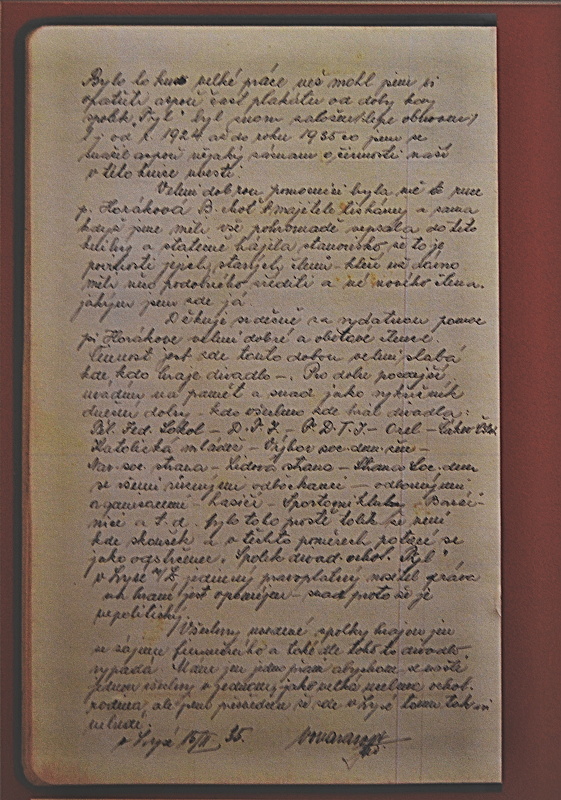 Bylo to kus velké práce než mohl jsem si
opatřiti aspoň část plakátů od doby kdy
spolek „Tyl" byl znovu založen (lépe obnoven)
t.j. od r. 1924 až do roku 1935 co jsem se
snažil aspoň nějaký záznam o činnosti naší
v této knize uvésti.
Velmi dobrou pomocnicí byla mě 
p. Horáková B. choť majitele tiskárny a sama
když jsme měli vše pohromadě sepsala do této
knihy a statečně hájila stanovisko, že to je
povinností jejich, starých členů které už dávno
měli něco podobného zříditi a ne nového člena,
jakým jsem zde já.
Děkuji srdečně za vydatnou pomoc
pí Horákové velmi dobré a obětavé člence.
Činnost jest zde touto dobou velmi slabá
kde kdo hraje divadlo –. Pro dobu pozdější
uvádím na paměť a snad jako vykřičník
dnešní doby – kdo všechno zde hrál divadla:
Děl. Fed. Sokol – D.T.J. – F.D.T.J. – Orel – Církev Čsl.
Katolická mládež – Výbor soc. dem. žen –
Nár. soc. strana – Lidová strana – Strana soc. dem.
se všemi různými odbočkami – odborovými
organisacemi – hasiči – Sportovní kluby – Baráč-
níce a t.d. bylo toho prostě tolik že není
kde zkoušek a v těchto poměrech potácí se
jako odstrčenec „Spolek divad. ochot. Tyl"
v Lysé n/L. jediný pravoplatný nositel práva
na hraní jest opomíjen – snad proto že je
nepolitický.
Všechny uvedené spolky hrají jen
ze zájmu finančního a také dle toho to divadlo
vypadá. Mám jen jedno přání abychom se sešli
jednou všichni v jednotný, jako velká ochot.
rodina, ale jsem přesvědčen že zde v Lysé tomu tak 
nebude.
v Lysé 35.